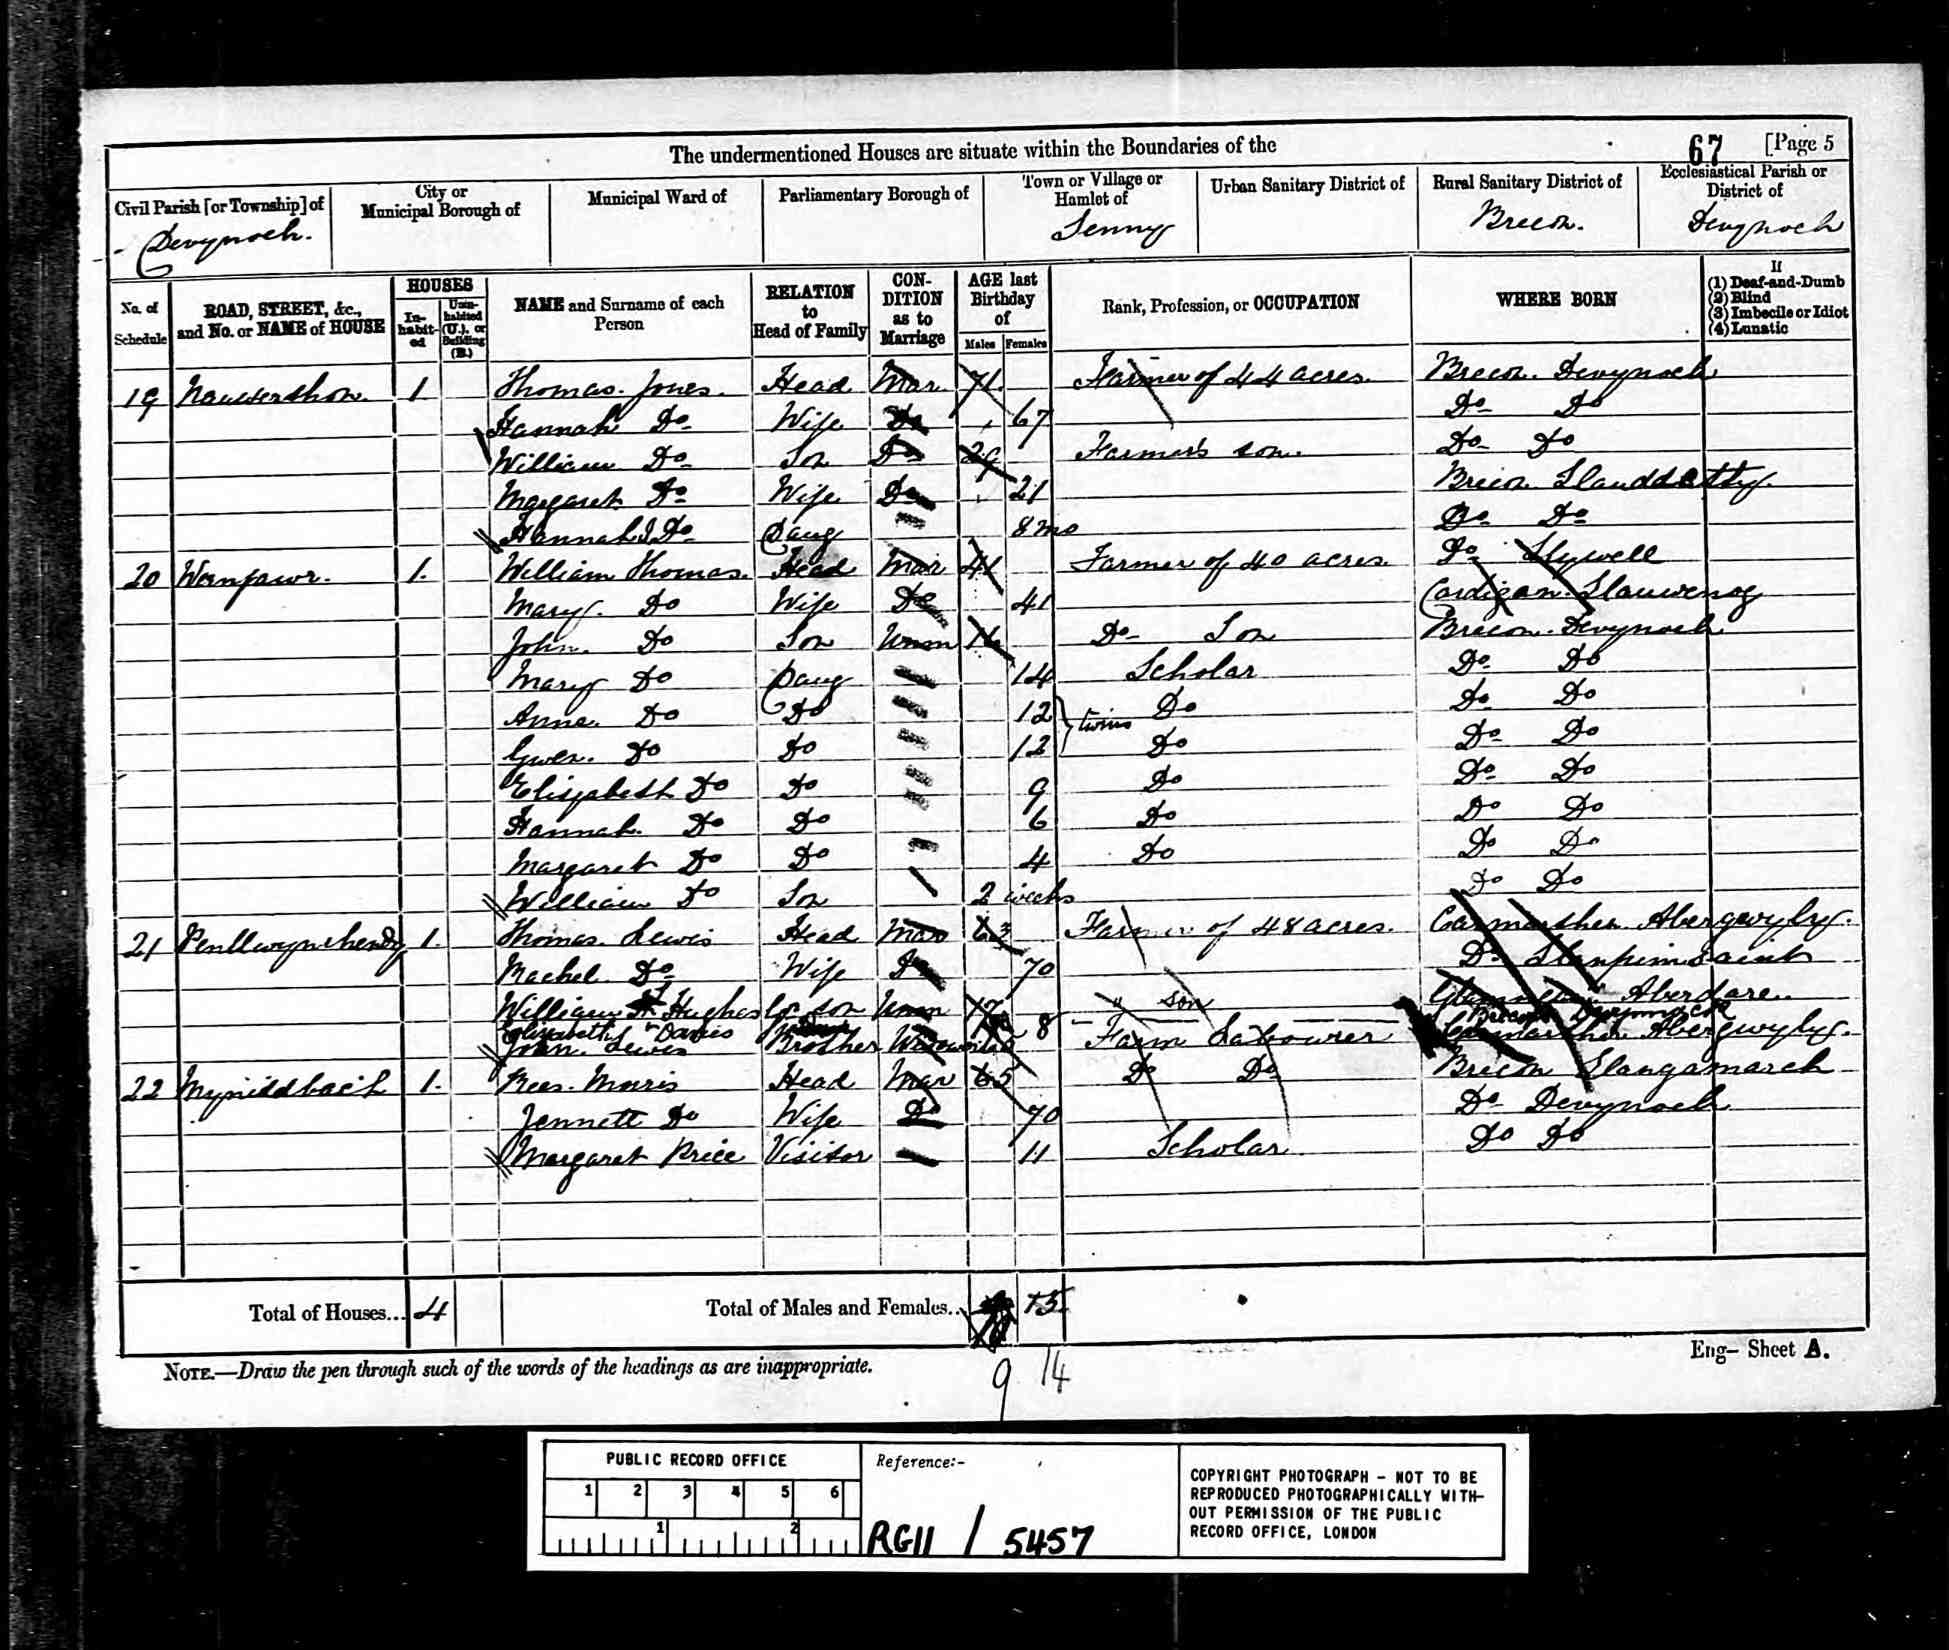 The undermentioned Houses are situate within the Boundaries of the 67 [Page 5
Civil Parish [or Township] of City or Municipal Borough of Municipal Ward of Parliamentary Borough of Town or Village or Hamlet of Urban Sanitary District of Rural Sanitary District of Ecclesiastical Parish or District of
Devynock. Senny Brecon. Devynock
No. of Schedule ROAD, STREET, &c., and No. or NAME of HOUSE HOUSES In-habit-ed Unin-habited (U.), or Building (B.) NAME and Surname of each Person RELATION to Head of Family CON-DITION as to Marriage AGE last Birthday of Males Females Rank, Profession, or OCCUPATION WHERE BORN If (1) Deaf-and-Dumb (2) Blind (3) Imbecile or Idiot (4) Lunatic
19 1 Thomas. Jones. Head Mar. 71. Farmer of 44 acres. Brecon. Devynock
Hannah Do Wife Do 67 Do Do
William Do Son Do 29 Farmer's son. Do Do
Margaret Do Wife Do 21 Brecon
Hannah J Do Daug 8 mo Do Do
20 Wernfawr. 1. William Thomas. Head Mar 41 Farmer of 40 acres. Do Llywell
Mary. Do Wife Do 41 Cardigan. Llanwenog
John. Do Son Unm 16 Do Son Brecon. Devynock
Mary Do Daug 14 Scholar Do Do
Anne. Do Do 12 } twins Do Do Do
Gwen. Do Do 12 Do Do Do
Elizabeth Do Do 9 Do Do Do
Hannah. Do Do 6 Do Do Do
Margaret Do Do 4 Do Do Do
William Do Son 2 weeks Do Do
21 Penllwynrhendy 1. Thomas. Lewis Head Mar 63 Farmer of 48 acres. Carmarthen Abergwyly.
Rachel. Do Wife Do 70 Do Llanpimsaint
William Hughes Gr son Unm 17 " son Aberdare.
Elizabeth Davies 8 Brecon Devynock
John. Lewis Brother Widower Farm Labourer Carmarthen Abergwyly.
22 Myniddbach 1. Rees. Morris Head Mar 65 Do Do Brecon Llangamarch
Jennett Do Wife Do 70 Do Devynock
Margaret Price Visitor 11 Scholar Do Do
Total of Houses... 4 Total of Males and Females.. 15
NOTE.—Draw the pen through such of the words of the headings as are inappropriate. 9 14 Eng– Sheet A.
PUBLIC RECORD OFFICE Reference:-
1 2 3 4 5 6
1 2
RG11 / 5457
COPYRIGHT PHOTOGRAPH – NOT TO BE
REPRODUCED PHOTOGRAPHICALLY WITH–
OUT PERMISSION OF THE PUBLIC
RECORD OFFICE, LONDON